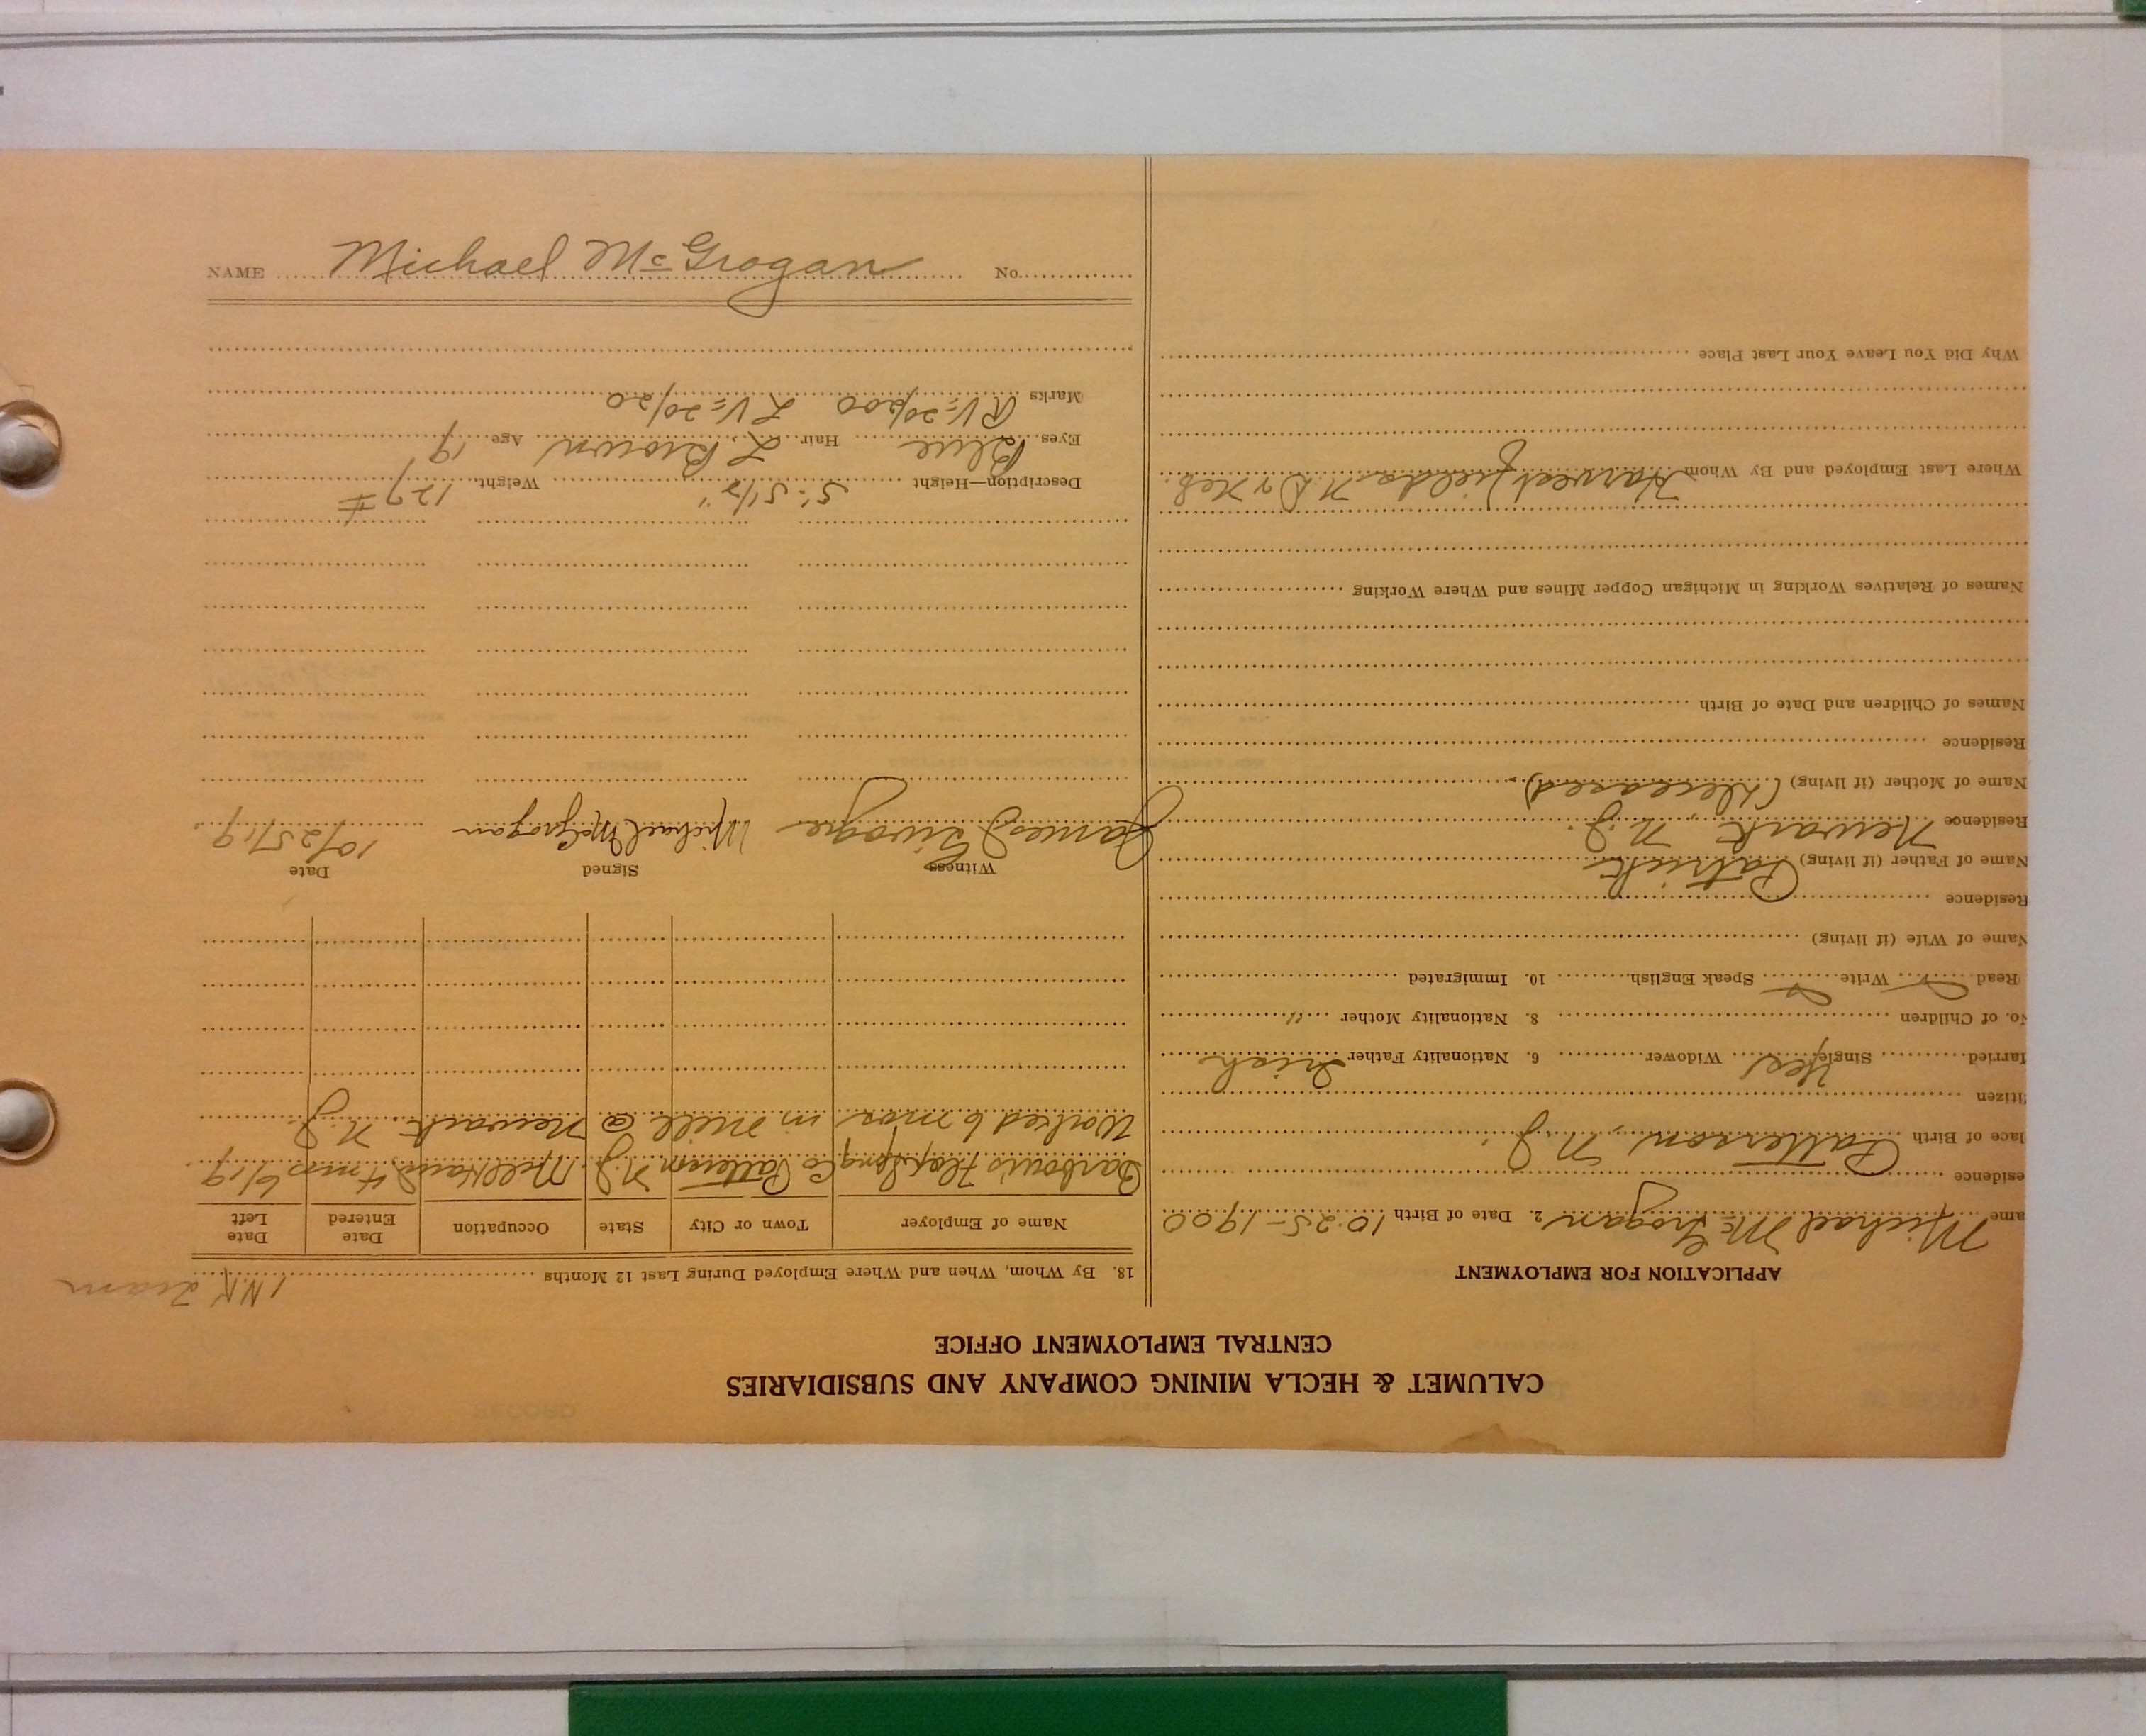 CALUMET & HECLA MINING COMPANY AND SUBSIDIARIES
CENTRAL EMPLOYMENT OFFICE
APPLICATION FOR EMPLOYMENT
ame Michael McGrogan 2. Date of Birth 10-25-1900
esidence
lace of Birth Patterson, N.J.
itizen
arried Single Yes Widower 6. Nationality Father Irish
No. of Children 8. Nationality Mother "
Read Write Speak English 10. Immigrated
Name of Wife (if living)
Residence
Name of Father (if living) Patrick
Residence Newark, N.J.
Name of Mother (if living) (Deceased)
Residence
Names of Children and Date of Birth
Names of Relatives Working in Michigan Copper Mines and Where Working
Where Last Employed and By Whom Harvest fields N.D & Neb.
Why Did You Leave Your Last Place
18. By Whom, When and Where Employed During Last 12 Months
Name of Employer Town or City State Occupation Date Entered Date Left
Flax Co Patterson N.J. Mill Hand 4 mos 6/19
Worked 6 mos in Mill @ Newark N.J.
Witness Signed Date
James Michael McGrogan 10/25/19
Description—Height 5'-5 1/2" Weight 127 #
Eyes Blue Hair L. Brown Age 19
Marks RV=20/200 LV=20/20
NAME Michael McGrogan No.